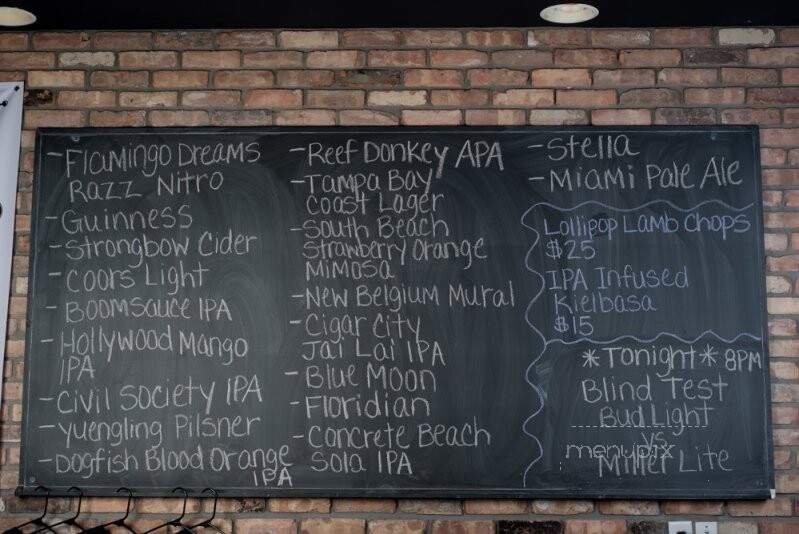 - Flamingo Dreams
Razz Nitro
- Guinness
- Strongbow Cider
- Coors Light
- Boomsauce IPA
- Hollywood Mango
IPA
- Civil Society IPA
- Yuengling Pilsner
- Dogfish Blood Orange
IPA
- Reef Donkey APA
- Tampa Bay
Coast Lager
- South Beach
Strawberry Orange
Mimosa
- New Belgium Mural
- Cigar City
Jai Lai IPA
- Blue Moon
- Floridian
- Concrete Beach
Sola IPA
- Stella
- Miami Pale Ale
Lollipop Lamb Chops
$25
IPA Infused
Kielbasa
$15
*Tonight* 8PM
Blind Test
Bud Light
vs
menupix
Miller Lite